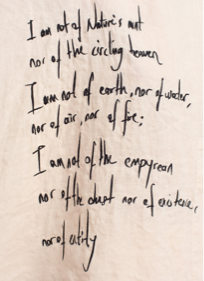 I am not of Nature's mint
nor of the circling heaven
I am not of earth, nor of water,
nor of air, nor of fire;
I am not of the empyrean
nor of the dust nor of existence,
nor of entity